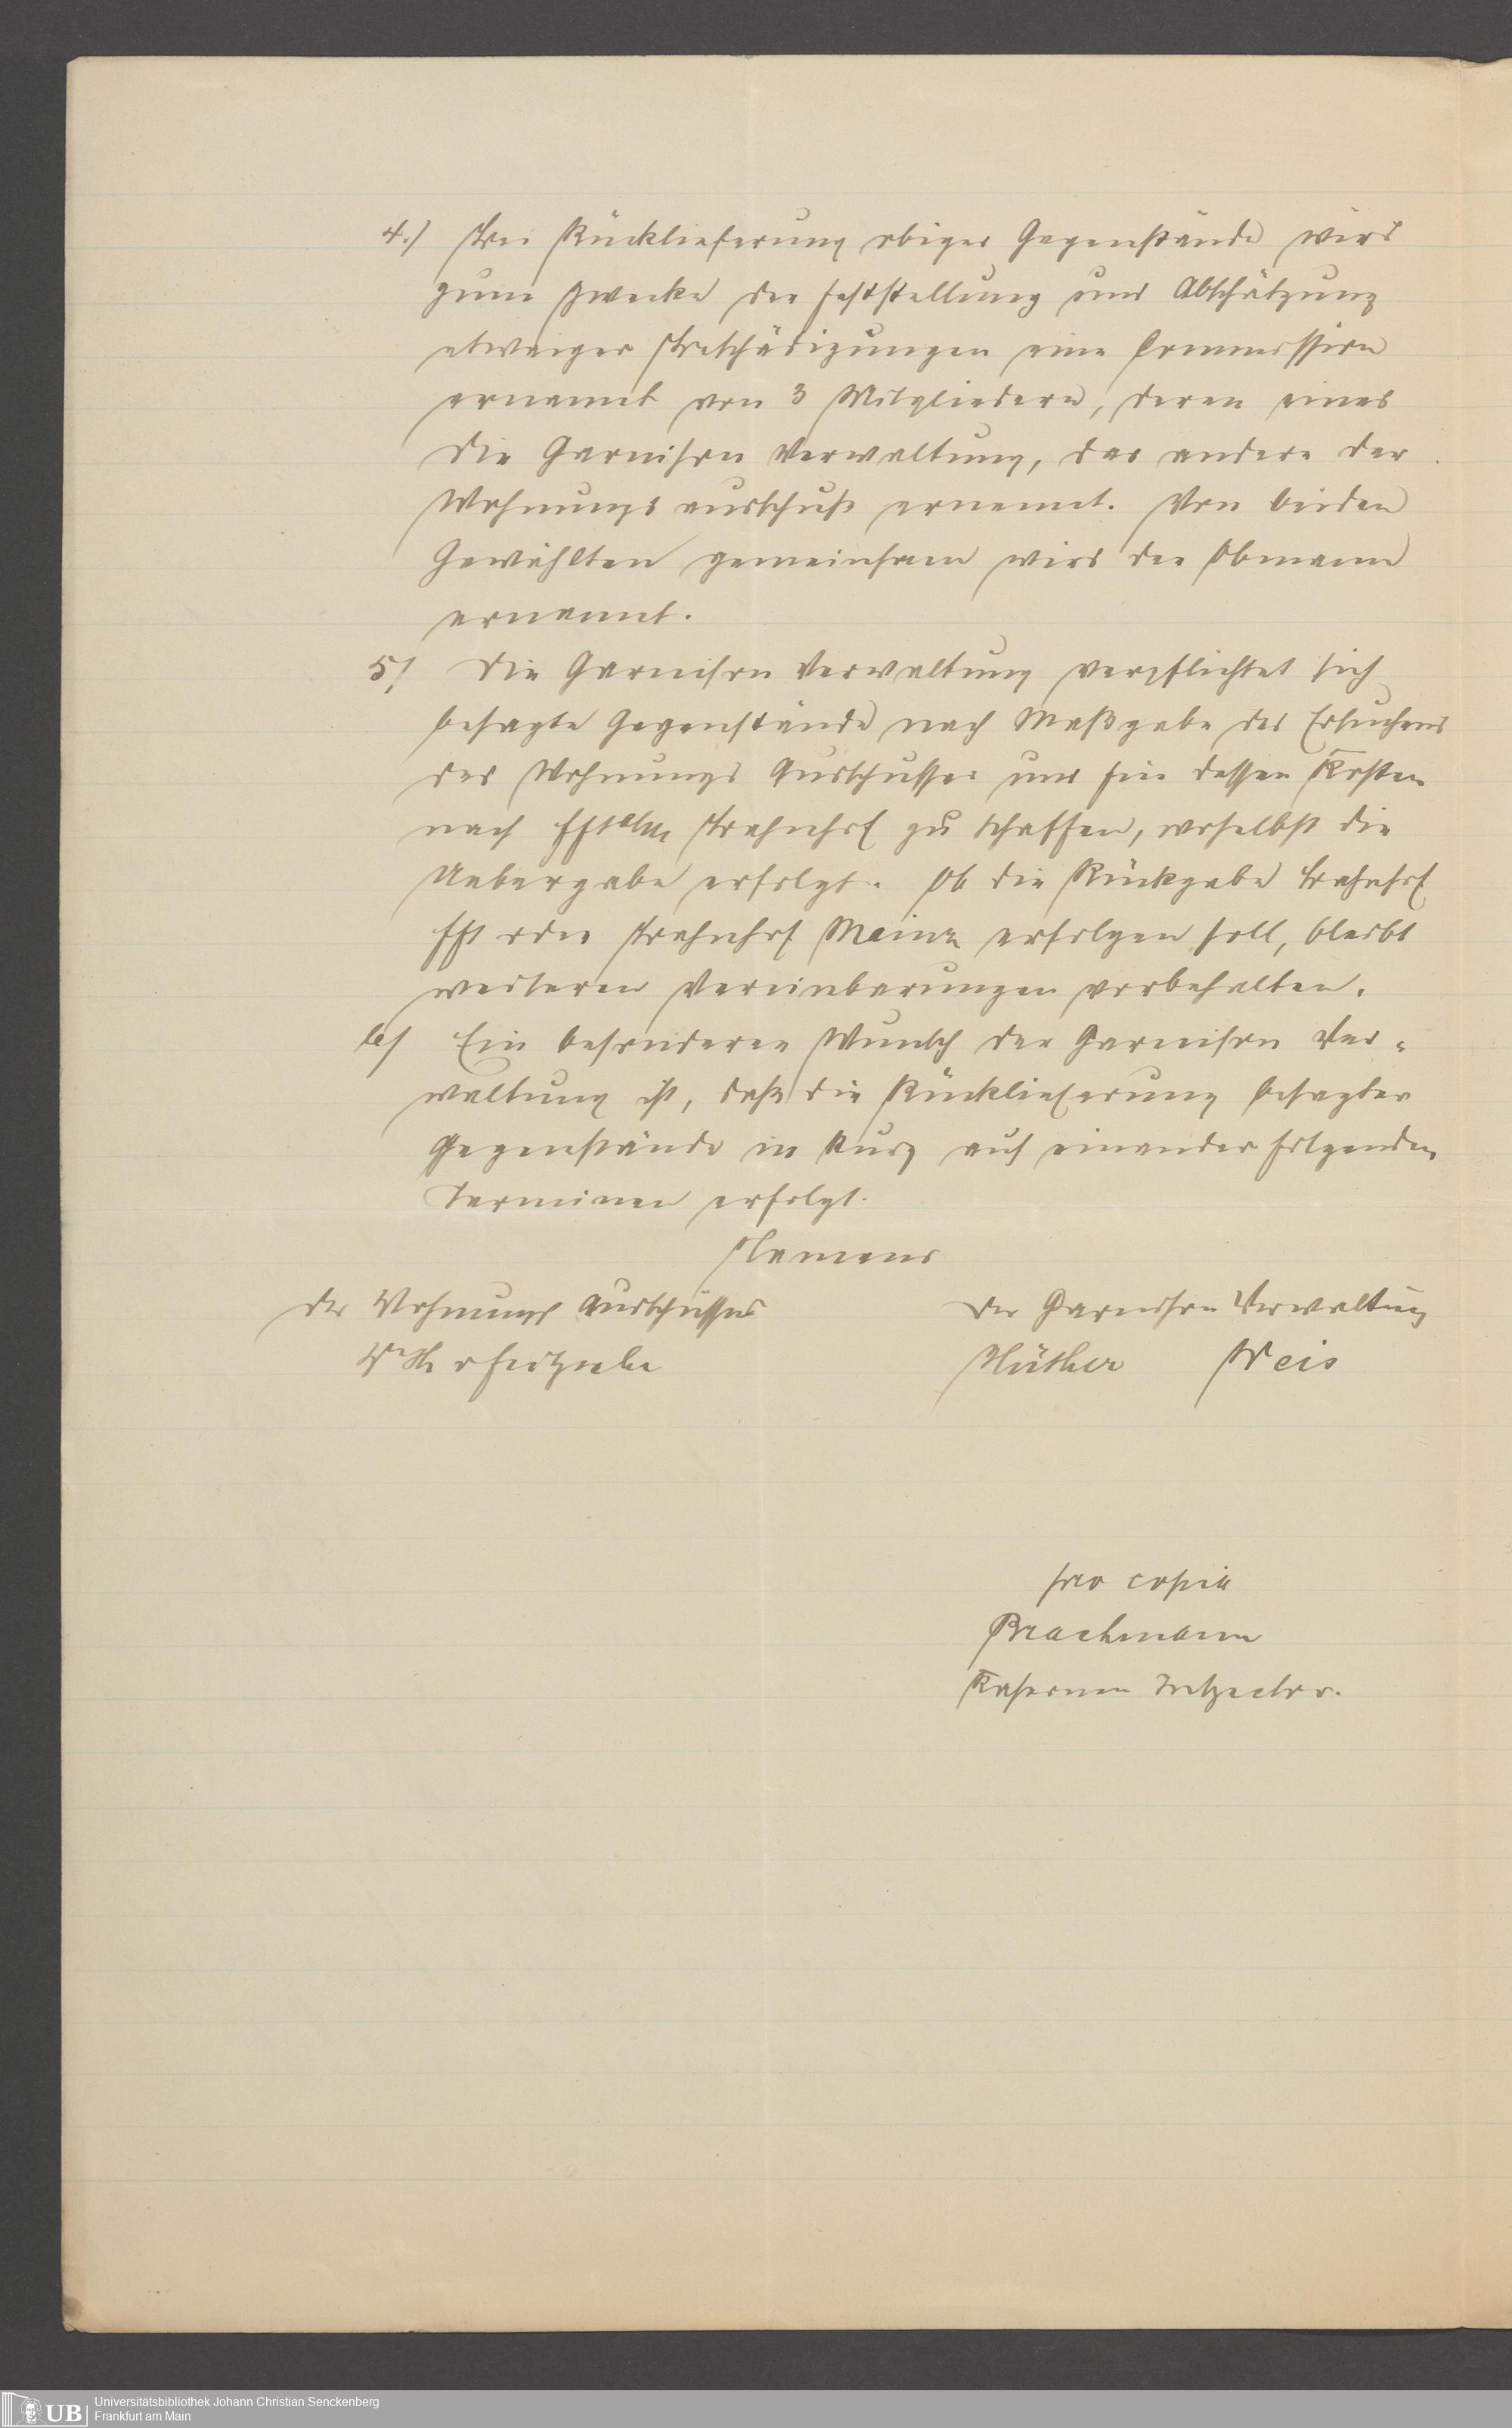 4.) Bei Rücklieferung obiger Gegenstände wird
zum Zwecke der Feststellung und Abschätzung
etwaiger Beschädigungen eine Commission
ernannt von 3 Mitgliedern, deren eines
die Garnison Verwaltung, das andere der
Wohnungsausschuß ernennt. Von beiden
Gewählten gemeinsam wird der Obmann
ernannt.
5/ Die Garnison Verwaltung verpflichtet sich
besagte Gegenstände nach Maßgabe des Ersuchens
des Wohnungs Ausschusses und für dessen Kosten
nach Fft a/M Bahnhof zu schaffen, woselbst die
Uebergabe erfolgt. Ob die Rückgabe Bahnhof
Fft oder Bahnhof Mainz erfolgen soll, bleibt
weiteren Vereinbarungen vorbehalten.
6/ Ein besonderer Wunsch der Garnison Ver-
waltung ist, daß die Rücklieferung besagter
Gegenstände in kurz auf einander folgenden
Terminen erfolgt.
Namens
des Wohnungs Ausschusses
der Garnison Verwaltung
Hüther Weis
pro copia
Brachmann
Kasernen Inspector.
Universitätsbibliothek Johann Christian Senckenberg
Frankfurt am Main
UB